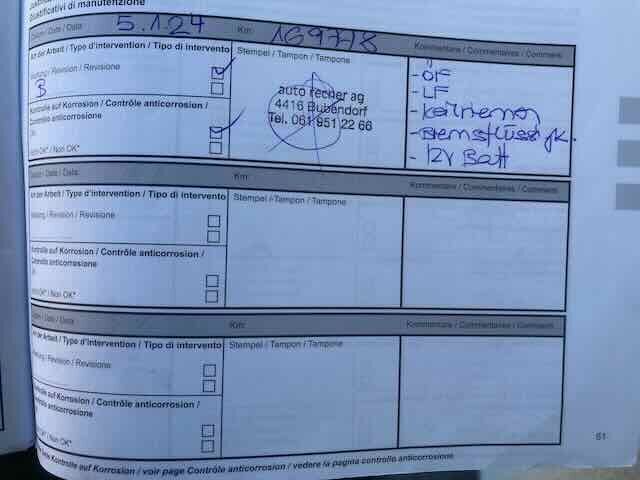 Giustificativi di manutenzione
Datum / Date / Data: 5.1.24 Km: 169778
Art der Arbeit / Type d'intervention / Tipo di intervento
Stempel / Tampon / Tampone
Kommentare / Commentaires / Commenti
Wartung / Revision / Revisione
B
Kontrolle auf Korrosion / Contrôle anticorrosion /
Controllo anticorrosione
OK
Non OK* / Non OK*
auto recher ag
4416 Bubendorf
Tel. 061 951 22 66
- ÖF
- LF
- Keilriemen
- Bremsflüss ok.
- 12V Batt
Datum / Date / Data: Km:
Art der Arbeit / Type d'intervention / Tipo di intervento
Stempel / Tampon / Tampone
Kommentare / Commentaires / Commenti
Wartung / Revision / Revisione
Kontrolle auf Korrosion / Contrôle anticorrosion /
Controllo anticorrosione
OK
Non OK* / Non OK*
Datum / Date / Data: Km:
Art der Arbeit / Type d'intervention / Tipo di intervento
Stempel / Tampon / Tampone
Kommentare / Commentaires / Commenti
Wartung / Revision / Revisione
Kontrolle auf Korrosion / Contrôle anticorrosion /
Controllo anticorrosione
OK
Non OK* / Non OK*
Seite Kontrolle auf Korrosion / voir page Contrôle anticorrosion / vedere la pagina controllo anticorrosione
61